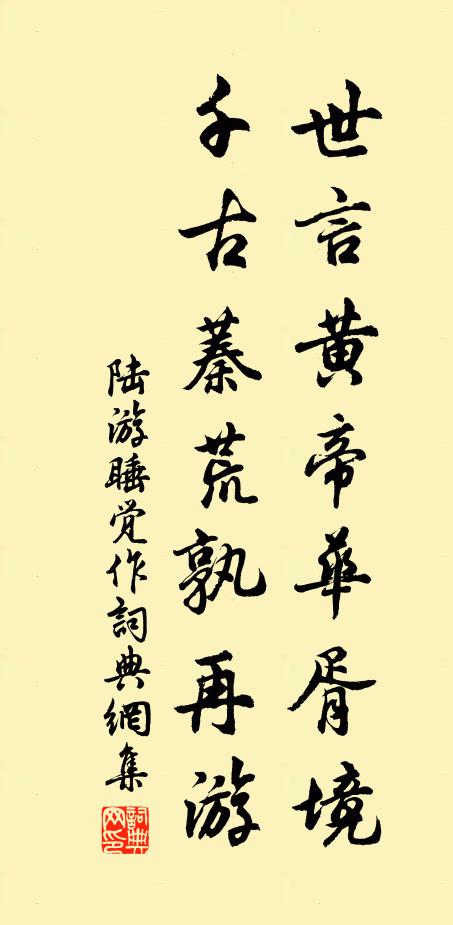 世言黄帝華胥境
千古蓁荒孰再游
陆游睡觉作詞典網集
詞典網印